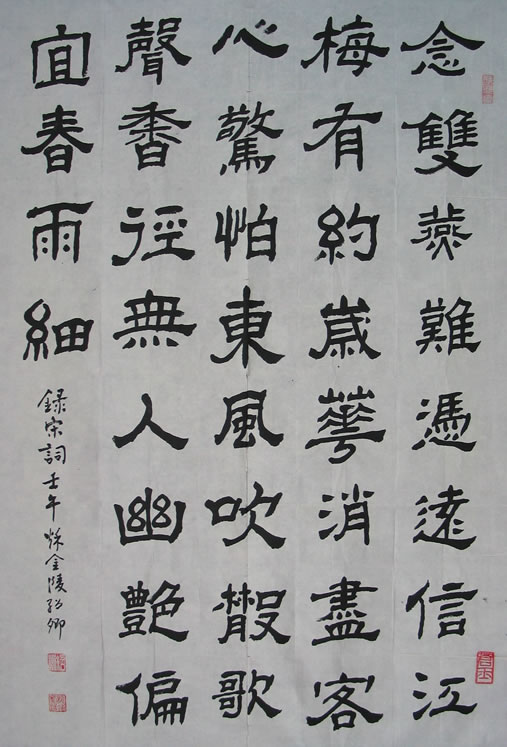 念雙燕難憑遠信江
梅有約歲華消盡客
心驚怕東風吹散歌
聲香徑無人幽艷偏
宜春雨細
錄宋詞壬午秋金陵孫卿